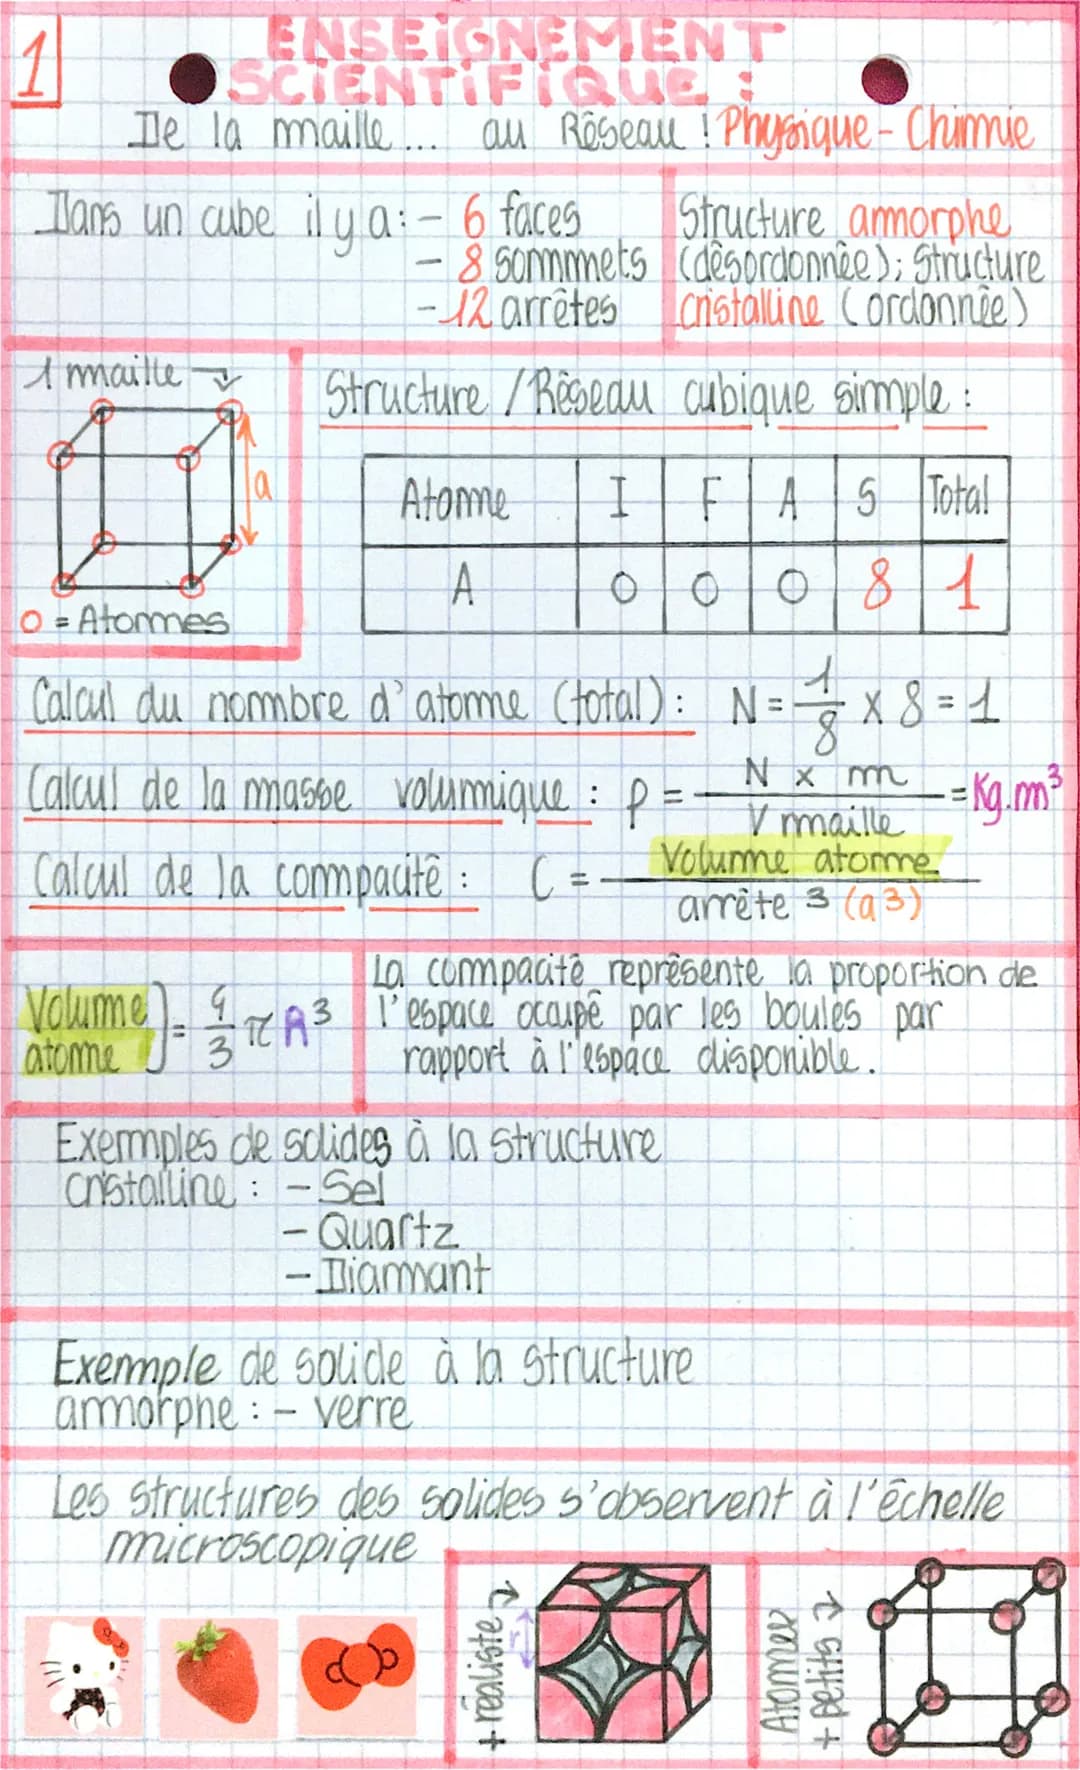 1
ENSEiGNEMENT
SCiENTiFiQUE :
De la maille... au Réseau ! Physique - Chimie
Dans un cube il y a : - 6 faces
- 8 sommets
- 12 arrêtes
Structure amorphe
(désordonnée) ; Structure
cristalline (ordonnée)
1 maille
a
O = Atomes
Structure / Réseau cubique simple :
Atome I F A S Total
A 0 0 0 8 1
Calcul du nombre d'atome (total) : N = 1/8 x 8 = 1
Calcul de la masse volumique : ρ = N x m / V maille = Kg.m³
Calcul de la compacité : C = Volume atome / arrête 3 (a3)
Volume atome = 4/3 π R³
La compacité représente la proportion de
l'espace occupé par les boules par
rapport à l'espace disponible.
Exemples de solides à la structure
cristalline : - Sel
- Quartz
- Diamant
Exemple de solide à la structure
amorphe : - verre
Les structures des solides s'observent à l'échelle
microscopique
+ réaliste
r
Atomes
+ petits